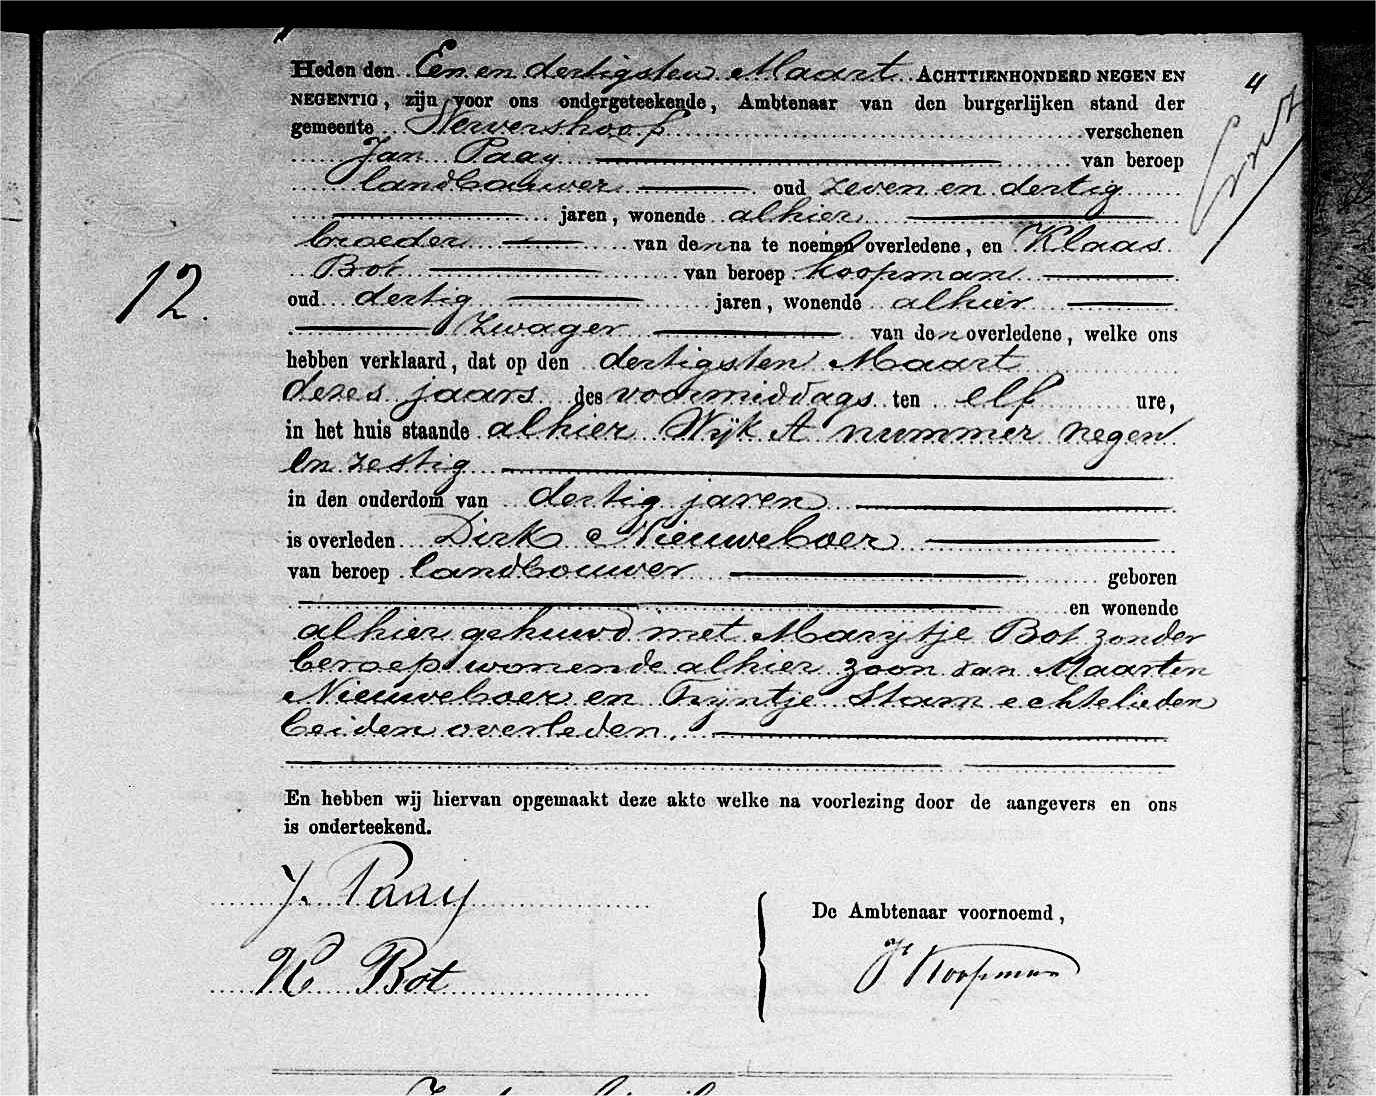 4
Heden den Een en dertigsten Maart ACHTTIENHONDERD NEGEN EN
NEGENTIG, zijn voor ons ondergeteekende, Ambtenaar van den burgerlijken stand der
gemeente Wervershoof verschenen
Jan Paay van beroep
landbouwer oud zeven en dertig
jaren, wonende alhier
broeder van den na te noemen overledene, en Klaas
12. Bot van beroep koopman
oud dertig jaren, wonende alhier
Zwager van den overledene, welke ons
hebben verklaard, dat op den dertigsten Maart
dezes jaars des voormiddags ten elf ure,
in het huis staande alhier Wijk A nummer negen
en zestig
in den ouderdom van dertig jaren
is overleden Dirk Nieuweboer
van beroep landbouwer geboren
en wonende
alhier gehuwd met Marijtje Bot zonder
beroep wonende alhier zoon van Maarten
Nieuweboer en Trijntje Stam echtelieden
beiden overleden.
En hebben wij hiervan opgemaakt deze akte welke na voorlezing door de aangevers en ons
is onderteekend.
J. Paay
De Ambtenaar voornoemd,
K Bot
J Koopman